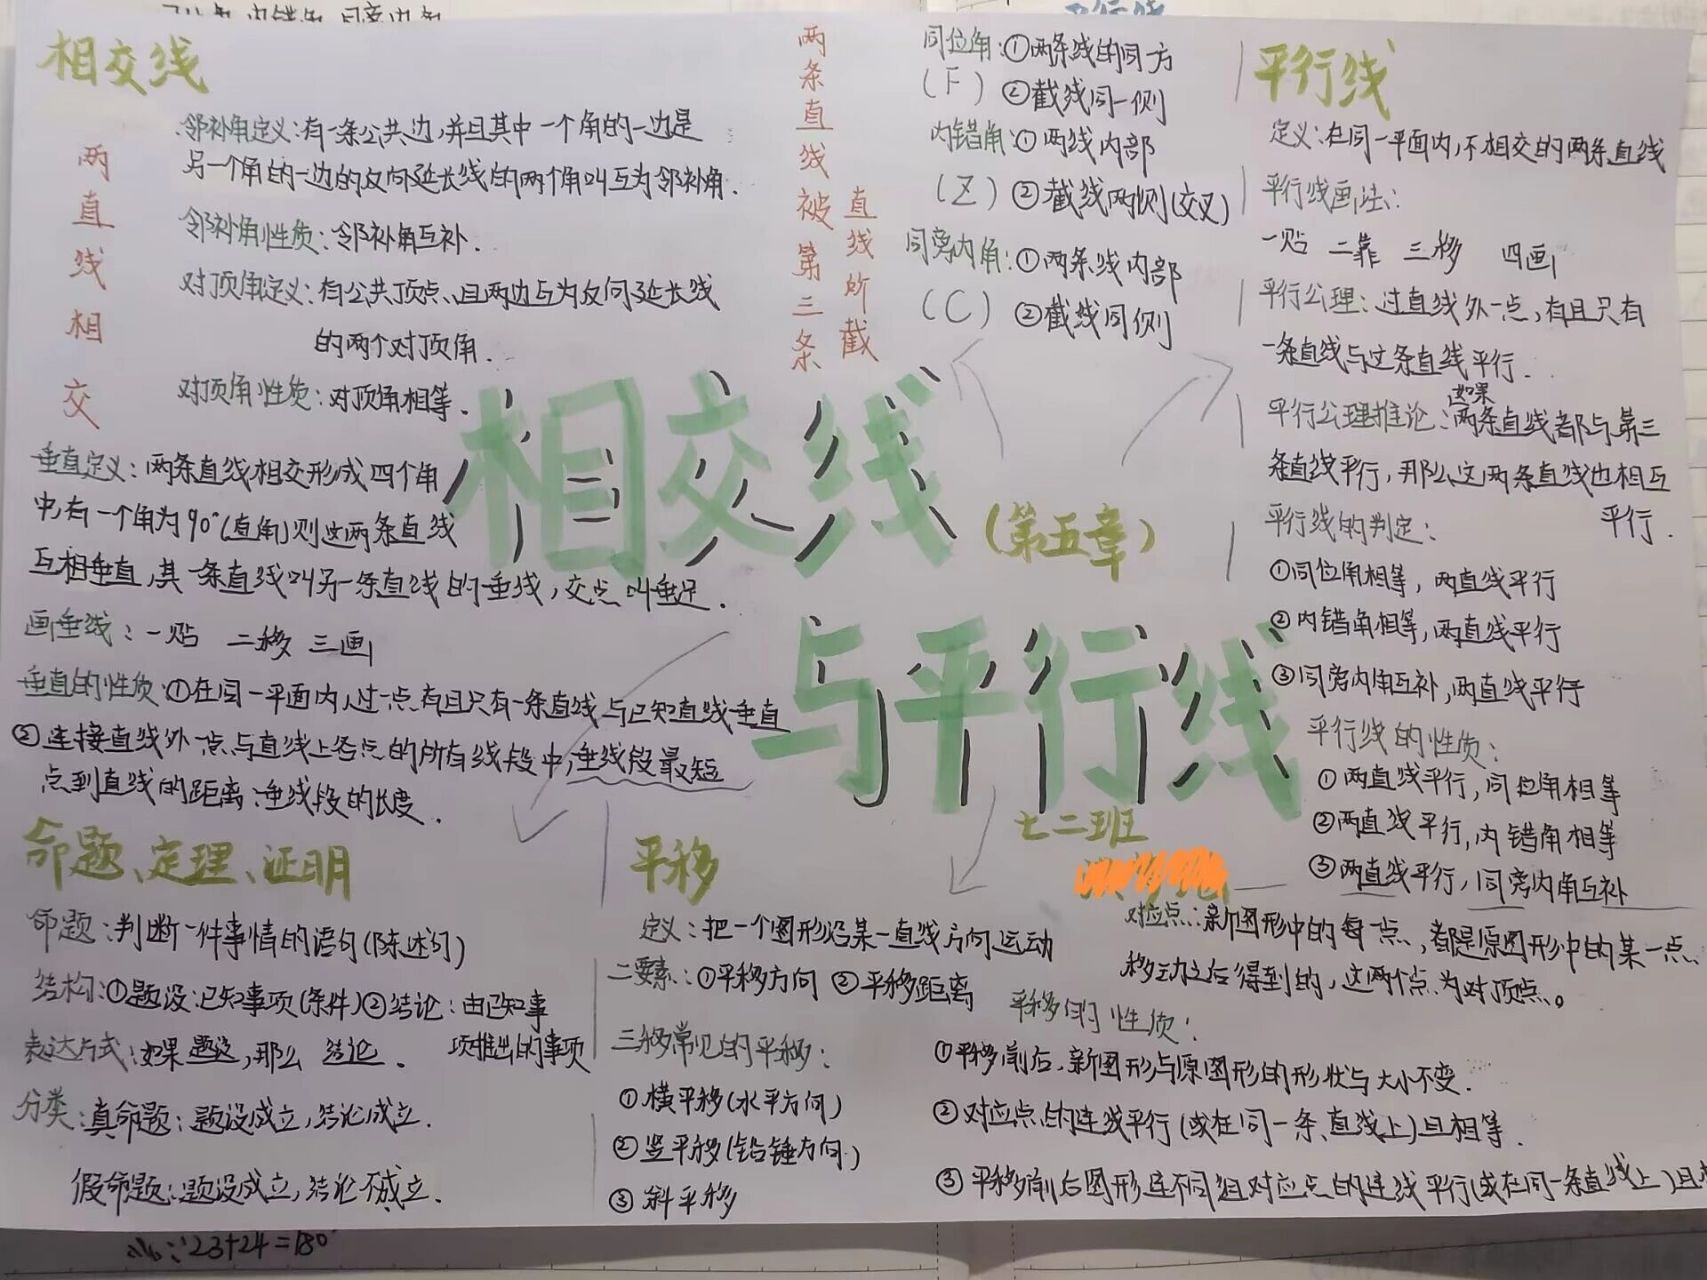 相交线
两直线相交
邻补角定义:有一条公共边,并且其中一个角的一边是
另一个角的一边的反向延长线的两个角叫互为邻补角.
邻补角性质:邻补角互补.
对顶角定义:有公共顶点、且两边互为反向延长线
的两个对顶角.
对顶角性质:对顶角相等.
垂直定义:两条直线相交形成四个角
中,有一个角为90°(直角)则这两条直线
互相垂直,其一条直线叫另一条直线的垂线,交点叫垂足.
画垂线:一贴 二移 三画
垂直的性质:①在同一平面内,过一点有且只有一条直线与已知直线垂直
②连接直线外一点与直线上各点的所有线段中,垂线段最短
点到直线的距离:垂线段的长度.
两条直线被第三条
直线所截
同位角:①两条线的同方
(F) ②截线同一侧
内错角:①两线内部
(Z) ②截线两侧(交叉)
同旁内角:①两条线内部
(C) ②截线同侧
相交线
(第五章)
与平行线
七二班
平行线
定义:在同一平面内,不相交的两条直线
平行线画法:
一贴 二靠 三移 四画
平行公理:过直线外一点,有且只有
一条直线与这条直线平行.
平行公理推论:如果两条直线都与第三
条直线平行,那么这两条直线也相互
平行.
平行线的判定:
①同位角相等,两直线平行
②内错角相等,两直线平行
③同旁内角互补,两直线平行
平行线的性质:
①两直线平行,同位角相等
②两直线平行,内错角相等
③两直线平行,同旁内角互补
命题、定理、证明
命题:判断一件事情的语句(陈述句)
结构:①题设:已知事项(条件)②结论:由已知事
项推出的事项
表达方式:如果题设,那么 结论.
分类:真命题:题设成立,结论成立.
假命题:题设成立,结论不成立.
平移
定义:把一个图形沿某一直线方向运动
二要素:①平移方向 ②平移距离
三移常见的平移:
①横平移(水平方向)
②竖平移(铅锤方向)
③斜平移
对应点:新图形中的每一点,都是原图形中的某一点
移动之后得到的,这两个点为对顶点。
平移的性质:
①平移前后,新图形与原图形的形状与大小不变.
②对应点的连线平行(或在同一条直线上)且相等.
③平移前后图形连不同组对应点的连线平行(或在同一条直线上)且